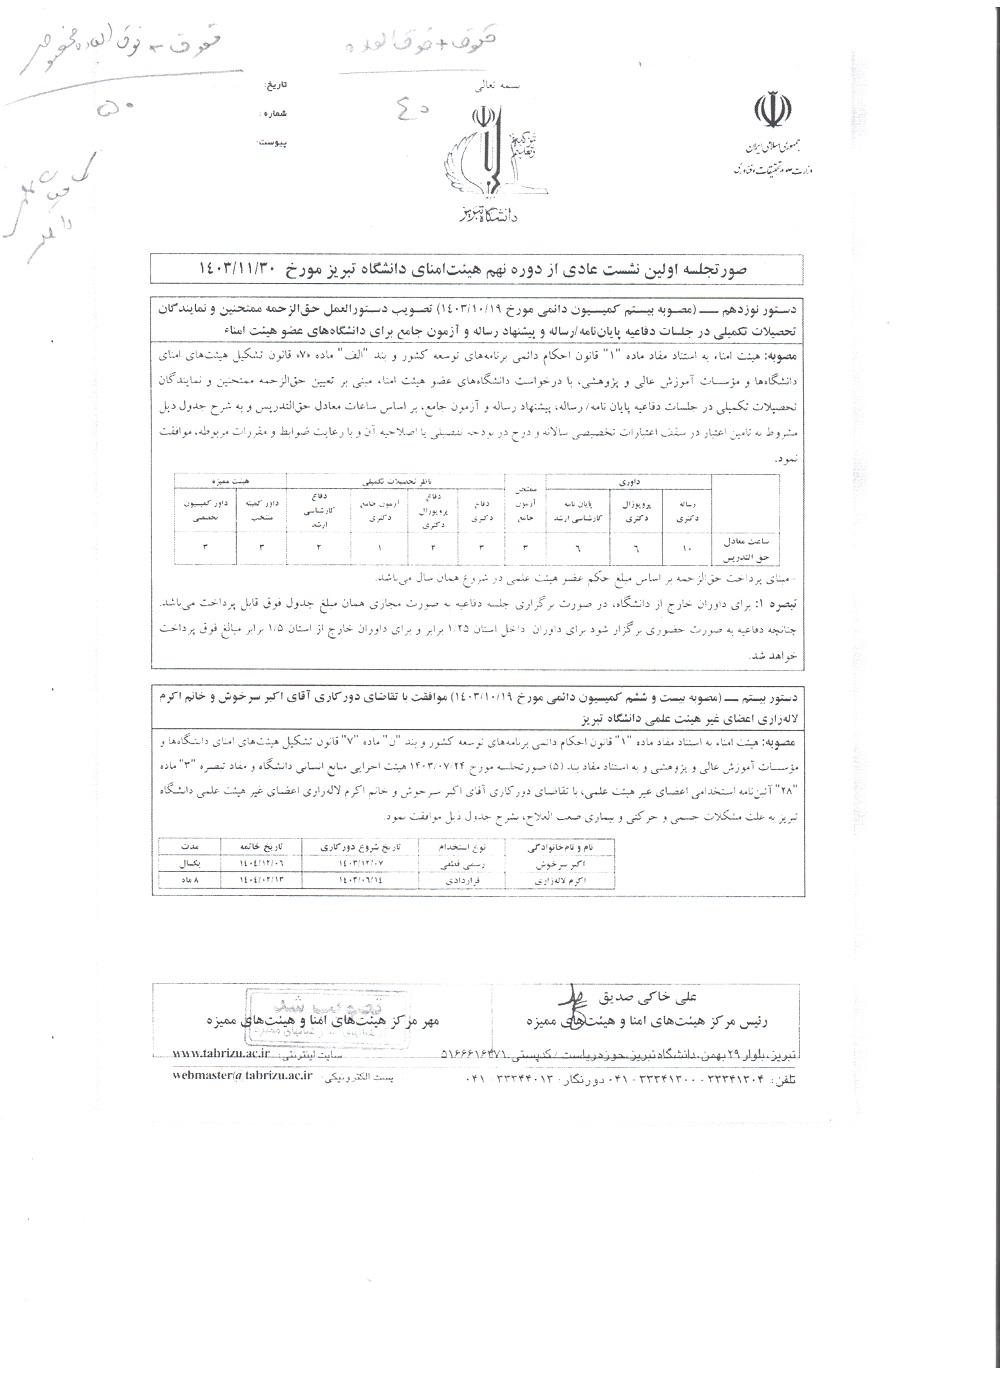 حقوق + فوق العاده مخصوص
۵۰
حقوق + فوق العاده
۴۰
تاریخ:
شماره:
پیوست:
بسمه تعالی
دانشگاه تبریز
جمهوری اسلامی ایران
وزارت علوم تحقیقات و فناوری
صورتجلسه اولین نشست عادی از دوره نهم هیئت‌امنای دانشگاه تبریز مورخ ۱٤۰۳/۱۱/۳۰
دستور نوزدهم ــ (مصوبه بیستم کمیسیون دائمی مورخ ۱٤۰۳/۱۰/۱۹) تصویب دستورالعمل حق‌الزحمه ممتحنین و نمایندگان
تحصیلات تکمیلی در جلسات دفاعیه پایان‌نامه/رساله و پیشنهاد رساله و آزمون جامع برای دانشگاه‌های عضو هیئت امناء
مصوبه: هیئت امناء به استناد مفاد ماده "۱" قانون احکام دائمی برنامه‌های توسعه کشور و بند "الف" ماده ۷۰، قانون تشکیل هیئت‌های امنای
دانشگاه‌ها و مؤسسات آموزش عالی و پژوهشی، با درخواست دانشگاه‌های عضو هیئت امناء مبنی بر تعیین حق‌الزحمه ممتحنین و نمایندگان
تحصیلات تکمیلی در جلسات دفاعیه پایان نامه/ رساله، پیشنهاد رساله و آزمون جامع، بر اساس ساعات معادل حق‌التدریس و به شرح جدول ذیل
مشروط به تامین اعتبار در سقف اعتبارات تخصیصی سالانه و درج در بودجه تفصیلی یا اصلاحیه آن و با رعایت ضوابط و مقررات مربوطه، موافقت
نمود.
داوری ممتحن آزمون جامع ناظر تحصیلات تکمیلی هیئت ممیزه
رساله دکتری پروپوزال دکتری پایان نامه کارشناسی ارشد دفاع دکتری دفاع پروپوزال دکتری آزمون جامع دکتری دفاع کارشناسی ارشد داور کمیته منتخب داور کمیسیون تخصصی
ساعت معادل حق التدریس ۱۰ ٦ ٦ ۳ ۳ ۲ ۱ ۲ ۳ ۳
- مبنای پرداخت حق‌الزحمه بر اساس مبلغ حکم عضو هیئت علمی در شروع همان سال می‌باشد.
تبصره ۱: برای داوران خارج از دانشگاه، در صورت برگزاری جلسه دفاعیه به صورت مجازی همان مبلغ جدول فوق قابل پرداخت می‌باشد.
چنانچه دفاعیه به صورت حضوری برگزار شود برای داوران داخل استان ۱.۲۵ برابر و برای داوران خارج از استان ۱.۵ برابر مبالغ فوق پرداخت
خواهد شد.
دستور بیستم ــ (مصوبه بیست و ششم کمیسیون دائمی مورخ ۱٤۰۳/۱۰/۱۹) موافقت با تقاضای دورکاری آقای اکبر سرخوش و خانم اکرم
لاله‌زاری اعضای غیر هیئت علمی دانشگاه تبریز
مصوبه: هیئت امناء به استناد مفاد ماده "۱" قانون احکام دائمی برنامه‌های توسعه کشور و بند "ل" ماده "۷" قانون تشکیل هیئت‌های امنای دانشگاه‌ها و
مؤسسات آموزش عالی و پژوهشی و به استناد مفاد بند (۵) صورتجلسه مورخ ۱۴۰۳/۰۷/۲۴ هیئت اجرایی منابع انسانی دانشگاه و مفاد تبصره "۳" ماده
"۲۸" آئین‌نامه استخدامی اعضای غیر هیئت علمی، با تقاضای دورکاری آقای اکبر سرخوش و خانم اکرم لاله‌زاری اعضای غیر هیئت علمی دانشگاه
تبریز به علت مشکلات جسمی و حرکتی و بیماری صعب العلاج، بشرح جدول ذیل موافقت نمود.
نام و نام‌خانوادگی نوع استخدام تاریخ شروع دورکاری تاریخ خاتمه مدت
اکبر سرخوش رسمی قطعی ۱٤۰۳/۱۲/۰۷ ۱٤۰٤/۱۲/۰٦ یکسال
اکرم لاله‌زاری قراردادی ۱٤۰۳/۰٦/۱٤ ۱٤۰٤/۰۲/۱۳ ۸ ماه
علی خاکی صدیق
رئیس مرکز هیئت‌های امنا و هیئت‌های ممیزه
مهر مرکز هیئت‌های امنا و هیئت‌های ممیزه
تبریز، بلوار ۲۹ بهمن، دانشگاه تبریز، حوزه ریاست / کدپستی: ۵۱۶۶۶۱۶۴۷۱ سایت اینترنتی: www.tabrizu.ac.ir
تلفن: ۳۳۳۴۱۳۰۴ - ۳۳۳۴۱۳۰۰-۰۴۱ دورنگار: ۳۳۳۴۴۰۱۳ -۰۴۱ پست الکترونیکی: webmaster@tabrizu.ac.ir